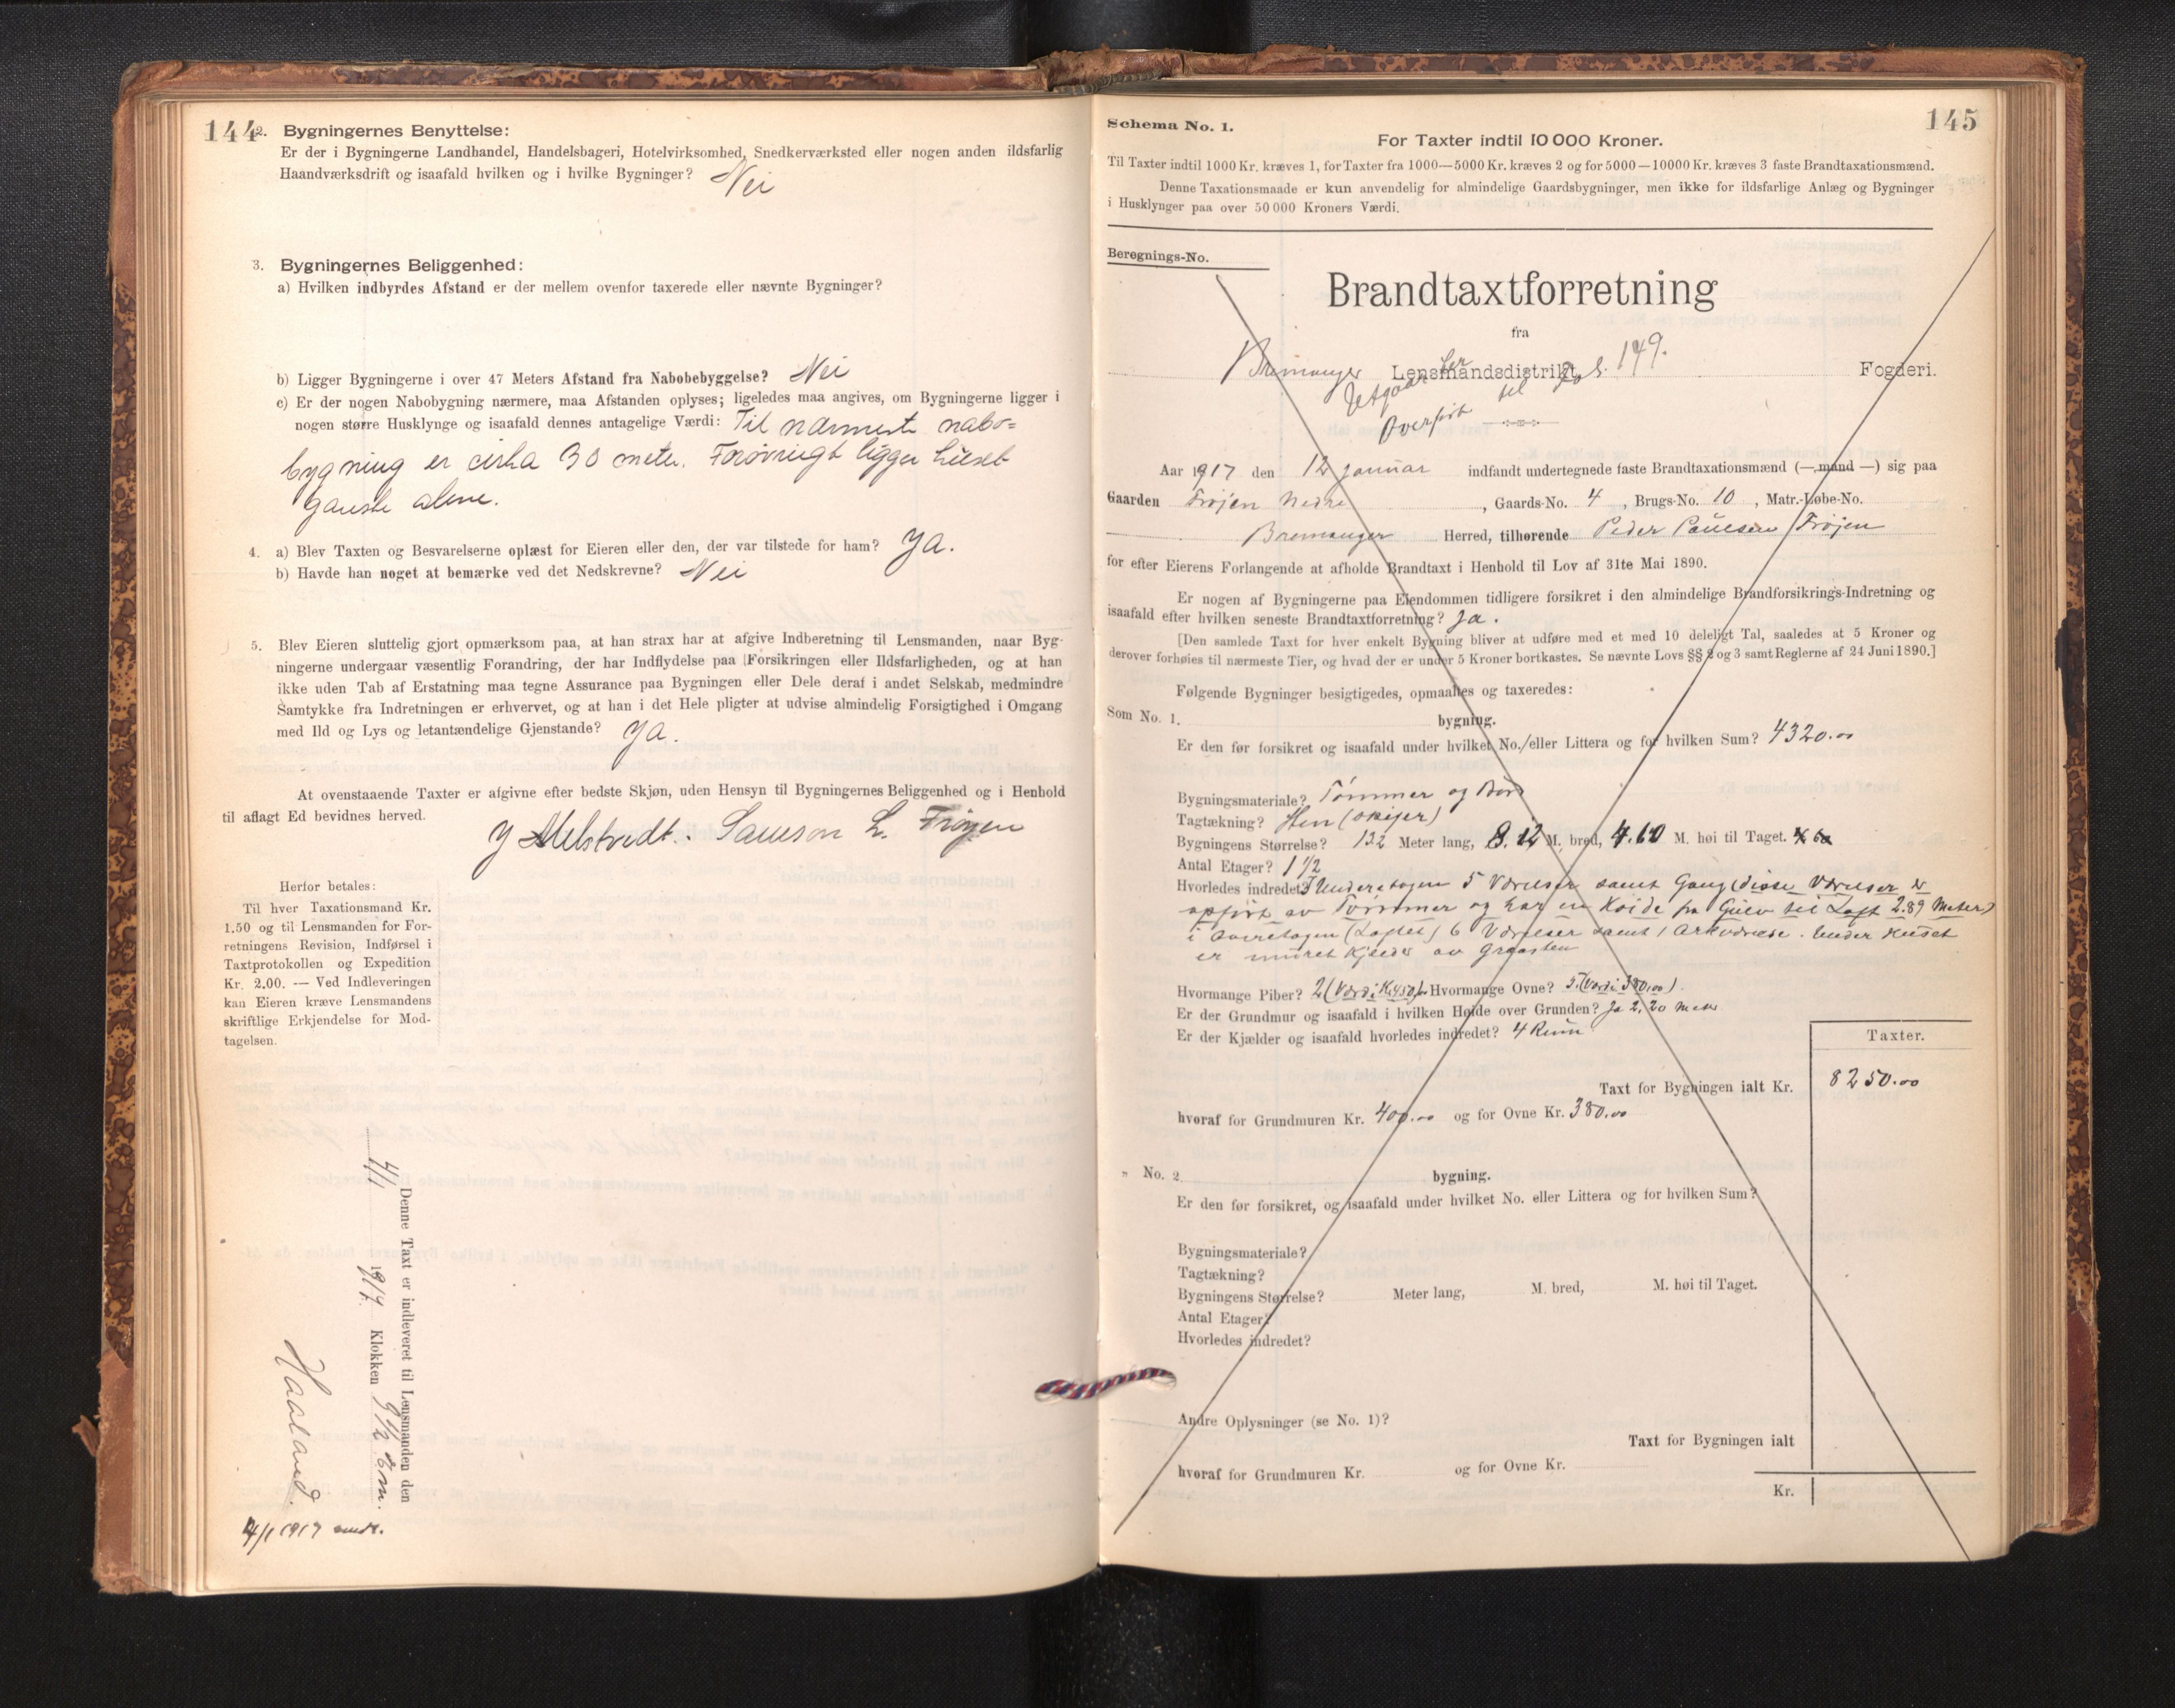 144
2. Bygningernes Benyttelse:
Er der i Bygningerne Landhandel, Handelsbageri, Hotelvirksomhed, Snedkerværksted eller nogen anden ildsfarlig
Haandværksdrift og isaafald hvilken og i hvilke Bygninger? Nei
3. Bygningernes Beliggenhed:
a) Hvilken indbyrdes Afstand er der mellem ovenfor taxerede eller nævnte Bygninger?
b) Ligger Bygningerne i over 47 Meters Afstand fra Nabobebyggelse? Nei
c) Er der nogen Nabobygning nærmere, maa Afstanden oplyses; ligeledes maa angives, om Bygningerne ligger i
nogen større Husklynge og isaafald dennes antagelige Værdi: Til nærmeste nabo=
bygning er cirka 30 meter. Forøvrigt ligger huset
ganske alene.
4. a) Blev Taxten og Besvarelserne oplæst for Eieren eller den, der var tilstede for ham? Ja.
b) Havde han noget at bemærke ved det Nedskrevne? Nei
5. Blev Eieren sluttelig gjort opmærksom paa, at han strax har at afgive Indberetning til Lensmanden, naar Byg-
ningerne undergaar væsentlig Forandring, der har Indflydelse paa Forsikringen eller Ildsfarligheden, og at han
ikke uden Tab af Erstatning maa tegne Assurance paa Bygningen eller Dele deraf i andet Selskab, medmindre
Samtykke fra Indretningen er erhvervet, og at han i det Hele pligter at udvise almindelig Forsigtighed i Omgang
med Ild og Lys og letantændelige Gjenstande? Ja.
At ovenstaaende Taxter er afgivne efter bedste Skjøn, uden Hensyn til Bygningernes Beliggenhed og i Henhold
til aflagt Ed bevidnes herved.
J Melstvedt. Samson L. Frøyen
Herfor betales:
Til hver Taxationsmand Kr.
1.50 og til Lensmanden for For-
retningens Revision, Indførsel i
Taxtprotokollen og Expedition
Kr. 2.00. — Ved Indleveringen
kan Eieren kræve Lensmandens
skriftlige Erkjendelse for Mod-
tagelsen.
Denne Taxt er indleveret til Lensmanden den
4/1 1917. Klokken 9 1/2 Em.
Haaland.
4/1 1917
145
Schema No. 1.
For Taxter indtil 10 000 Kroner.
Til Taxter indtil 1000 Kr. kræves 1, for Taxter fra 1000—5000 Kr. kræves 2 og for 5000—10000 Kr. kræves 3 faste Brandtaxationsmænd.
Denne Taxationsmaade er kun anvendelig for almindelige Gaardsbygninger, men ikke for ildsfarlige Anlæg og Bygninger
i Husklynger paa over 50 000 Kroners Værdi.
Beregnings-No.
Brandtaxtforretning
fra
Bremanger Lensmandsdistrikt, Fogderi.
Utgaar her
Overført til Fol. 149.
Aar 1917 den 12 januar indfandt undertegnede faste Brandtaxationsmænd (— mand —) sig paa
Gaarden Frøjen Nedre, Gaards-No. 4, Brugs-No. 10, Matr.-Løbe-No.
Bremanger Herred, tilhørende Peder Paulsen Frøjen
for efter Eierens Forlangende at afholde Brandtaxt i Henhold til Lov af 31te Mai 1890.
Er nogen af Bygningerne paa Eiendommen tidligere forsikret i den almindelige Brandforsikrings-Indretning og
isaafald efter hvilken seneste Brandtaxtforretning? Ja.
[Den samlede Taxt for hver enkelt Bygning bliver at udføre med et med 10 deleligt Tal, saaledes at 5 Kroner og
derover forhøies til nærmeste Tier, og hvad der er under 5 Kroner bortkastes. Se nævnte Lovs §§ 2 og 3 samt Reglerne af 24 Juni 1890.]
Følgende Bygninger besigtigedes, opmaaltes og taxeredes:
Som No. 1. bygning.
Er den før forsikret og isaafald under hvilket No. eller Littera og for hvilken Sum? 4320.00
Bygningsmateriale? Tømmer og Bord
Tagtækning? Sten (Skifer)
Bygningens Størrelse? 13.2 Meter lang, 8.12 M. bred, 4.60 M. høi til Taget.
Antal Etager? 1 1/2
Hvorledes indredet? I Underetagen 5 Værelser samt Gang (disse Værelser er
opført av Tømmer og har en Høide fra Gulv til Loft 2.89 Meter)
i Overetagen (Loftet) 6 Værelser samt 1 Arkværelse. Under Huset
er muret Kjelder av Graasten
Hvormange Piber? 2 (Værdi Kr 450) Hvormange Ovne? 5. (Værdi 380,00).
Er der Grundmur og isaafald i hvilken Høide over Grunden? Ja 2,20 Meter
Er der Kjælder og isaafald hvorledes indredet? 4 Rum
Taxter.
Taxt for Bygningen ialt Kr. 8250.00
hvoraf for Grundmuren Kr. 400.00 og for Ovne Kr. 380.00
„ No. 2. bygning.
Er den før forsikret, og isaafald under hvilket No. eller Littera og for hvilken Sum?
Bygningsmateriale?
Tagtækning?
Bygningens Størrelse? Meter lang, M. bred, M. høi til Taget.
Antal Etager?
Hvorledes indredet?
Andre Oplysninger (se No. 1)?
Taxt for Bygningen ialt
hvoraf for Grundmuren Kr. og for Ovne Kr.
Kr.